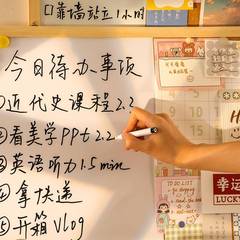 口靠墙站立1小时
今日待办事项
①近代史课程2.2
②看美学PPt2.2
③英语听力1.5min
④拿快递
⑤开箱Vlog
TO DO LIST
幸运
LUCKY